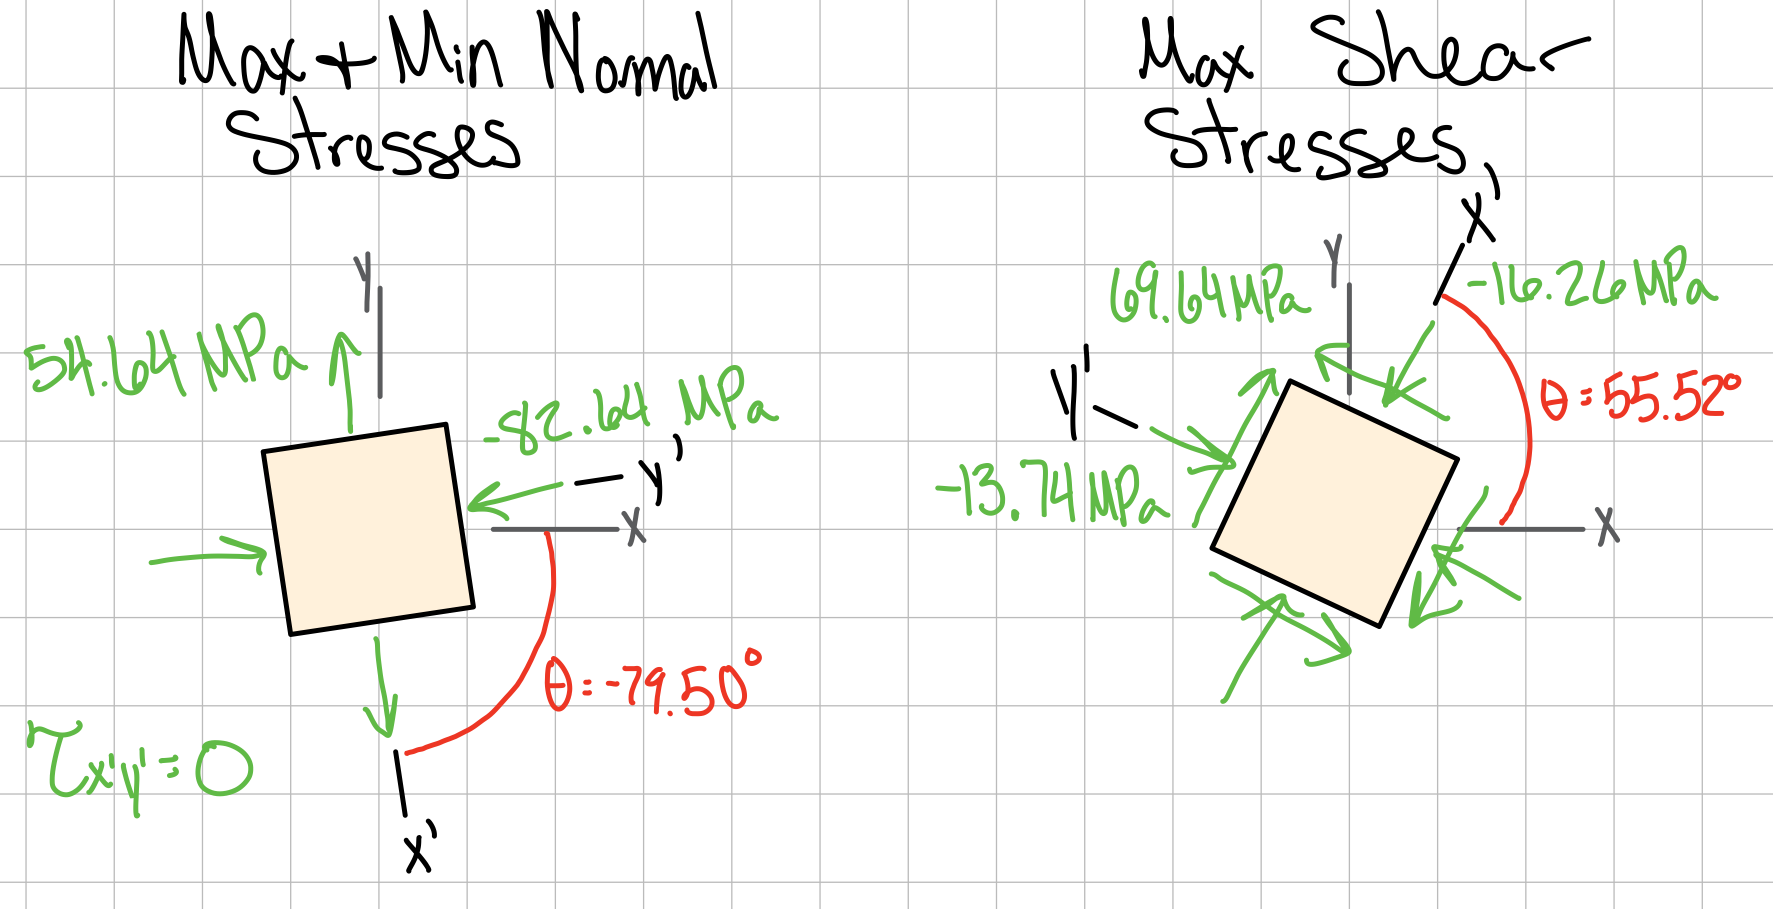 Max + Min Normal
Stresses
Y
54.64 MPa
-82.64 MPa
y'
X
θ = -79.50°
τx'y' = 0
x'
Max Shear
Stresses
X'
Y
69.64 MPa
-16.26 MPa
Y'
θ = 55.52°
-13.74 MPa
X